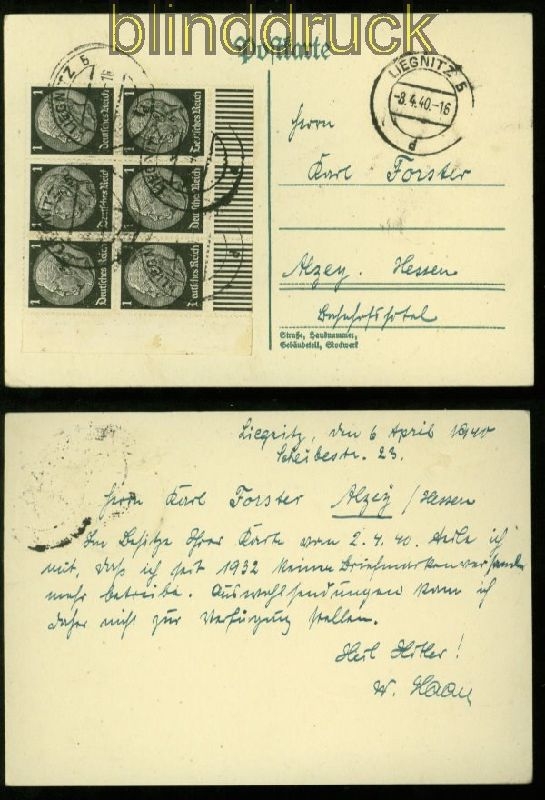 blinddruck
Postkarte
LIEGNITZ 5
-8.4.40.-16
P
1 Deutsches Reich
1 Deutsches Reich
1 Deutsches Reich
1 Deutsches Reich
1 Deutsches Reich
1 Deutsches Reich
Herrn
Karl Forster
Alzey. Hessen
Bahnhofshotel
Straße, Hausnummer,
Gebäudeteil, Stockwerk
Liegnitz, den 6 April 1940
Scheibestr. 23.
Herrn Karl Forster Alzey / Hessen
Im Besitze Ihrer Karte vom 2.4.40. teile ich
mit, daß ich seit 1932 keinen Briefmarkenversand
mehr betreibe. Auswahlsendungen kann ich
daher nicht zur Verfügung stellen.
Heil Hitler!
W. Haan